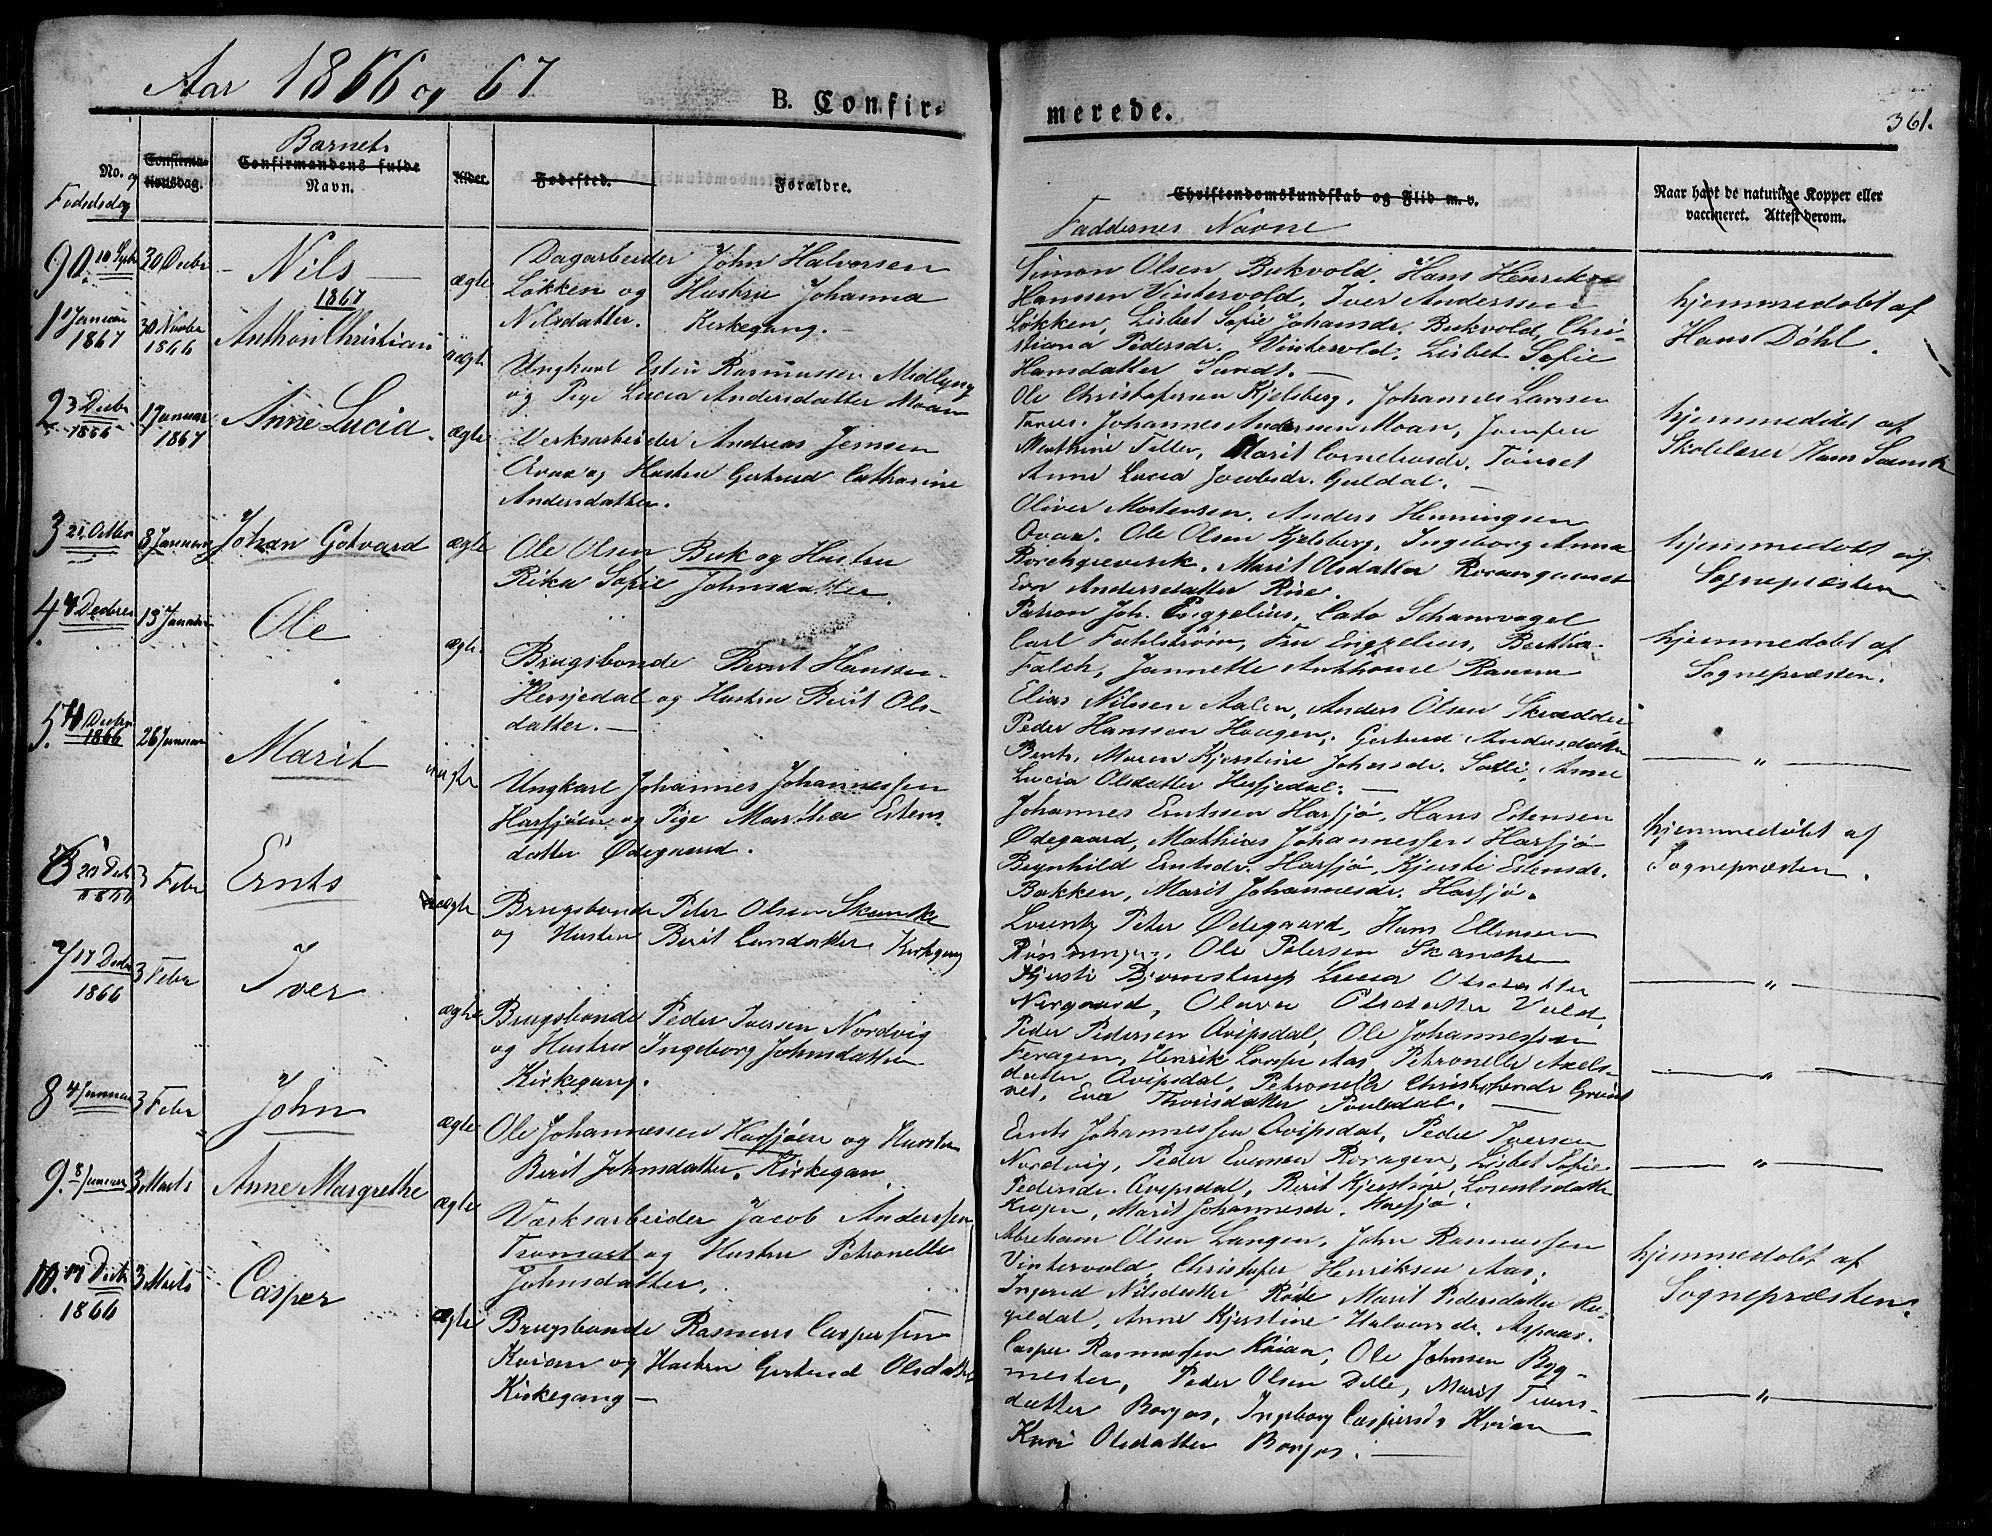 Aar 1866 og 67
B. Confir-
merede.
361.
No. og
Fødselsdag
Confirma-
tionsdag.
Barnets
Confirmandens fulde
Navn.
Alder.
Fødested.
Forældre.
Christendomskundskab og Flid m. v.
Faddernes Navne
Naar havt de naturlige Kopper eller
vaccineret. Attest derom.
90.
30 Decbr
Nils
ægte
Dagarbeider John Halvorsen
Løkken og Hustru Johanna
Nilsdatter. Kirkegang.
Simon Olsen Bukvold, Hans Henrik
Hanssen Vintervold, Iver Anderssen
Løkken, Lisbet Sofie Johansdr. Bukvold, Chri-
stiana Pedersdr. Vintervold, Lisbet Sofie
Hansdatter Sundt.
hjemmedøbt af
Hans Döhl.
1867
1 Januar
1867
30 Novbr
1866
Anthon Christian
uægte
Ungkarl Esten Rasmussen
og Pige Lucia Andersdatter Moan
Ole Christofersen Kjelsberg, Johannes Larsen
Johannes Andersen Moan, Jomfru
Mathine Teller, Marit Corneliusdr. Tönset
Anne Lucia Jacobsdr. Guldal.
hjemmedöbt af
Skolelærer Hans
2 3 Decbr
1866
1 Januar
1867
Anne Lucia
ægte
Verksarbeider Andreas Jensen
og Hustru Gertrud Catharine
Andersdatter.
Oliver Mortensen, Anders Henningsen
Ole Olsen Kjelsberg, Ingeborg Anna
Borchgrevink, Marit Olsdatter
Eva Andersdatter Rise.
hjemmedøbt af
Sognepræsten
3 21 Octbr
8 Januar
Johan Gotvard
ægte
Ole Olsen Buk og Hustru
Rika Sofie Johnsdatter.
Patron Joh. Engzelius, Cato
Carl Fahlstrøm, Fru Engzelius, Berthe
Falch, Jannette
hjemmedøbt af
Sognepræsten.
4. 4 Decbr
13 Januar
Ole
ægte
Brugsbonde Bernt Hanssen
Hersjedal og Hustru Berit Ols-
datter.
Elias Nilssen Aalen, Anders Olsen
Peder Hanssen Haugen, Gertrud Andersdatter
Maren Kjerstine Johnsdr. Anne
Lucia Olsdatter Hersjedal.
"
5. 4 Decbr
1866
26 Januar
Marit
uægte
Ungkarl Johannes Johannessen
Harsjøen og Pige Marthe Estens-
datter Ødegaard.
Johannes Erntssen Harsjø, Hans Estensen
Ødegaard, Mathias Johannessen Harsjø
Brynhild Erntsdr. Harsjø, Kjersti Estensdr.
Bakken, Marit Johannesdr. Harsjø.
hjemmedøbt af
Sognepræsten.
6 20 Decbr
1866
3 Febr
Ernts
ægte
Brugsbonde Peter Olsen Skancke
og Hustru Berit Larsdatter. Kirkegang
Lorentz Peter Ødegaard, Hans Ellensen
Rønningen, Ole Petersen Skancke
Kjersti Bjørnstrup Lucia Olsdatter
Nergaard, Olava Olsdatter
"
7 17 Decbr
1866
3 Febr
Iver
ægte
Brugsbonde Peder Iversen Nordvig
og Hustru Ingeborg Johnsdatter
Kirkegang.
Peder Pedersen Avipsdal, Ole Johannessen
Feragen, Henrik Larsen Aas, Petronelle Axels-
datter Avipsdal, Petronelle Christofersdr.
Eva Thorisdatter Povlsdal.
"
8 4 Januar
3 Febr
John
ægte
Ole Johannessen Harsjøen og Hustru
Berit Johnsdatter. Kirkegan
Ernts Johannessen Avipsdal, Peder Iversen
Nordvig, Peder Evensen Roragen, Lisbet Sofie
Pedersdr. Avipsdal, Berit Kjerstine Lorentsdatter
Kragen, Marit Johannesdr. Harsjø.
"
9. 8 Januar
3 Marts
Anne Margrethe
ægte
Værksarbeider Jacob Anderssen
Tromsart og Hustru Petronelle
Johnsdatter.
Abraham Olsen Langen, John Rasmussen
Vintervold, Christofer Henriksen Aas,
Ingerid Nilsdatter Røde Marit Pedersdatter Ru-
geldal, Anne Kjerstine Halvorsdr. Aspaas.
hjemmedøbt af
Sognepræsten.
10. 17 Decbr
1866
3 Marts
Casper
ægte
Brugsbonde Rasmus Caspersen
Kvian og Hustru Gertrud Olsdatter
Kirkegang
Casper Rasmussen Kvian, Ole Johnsen Byg-
mester, Peder Olsen Dille, Marit
datter Borgos, Ingeborg Caspersdr Kvian
Kari Olsdatter Borgos.
"